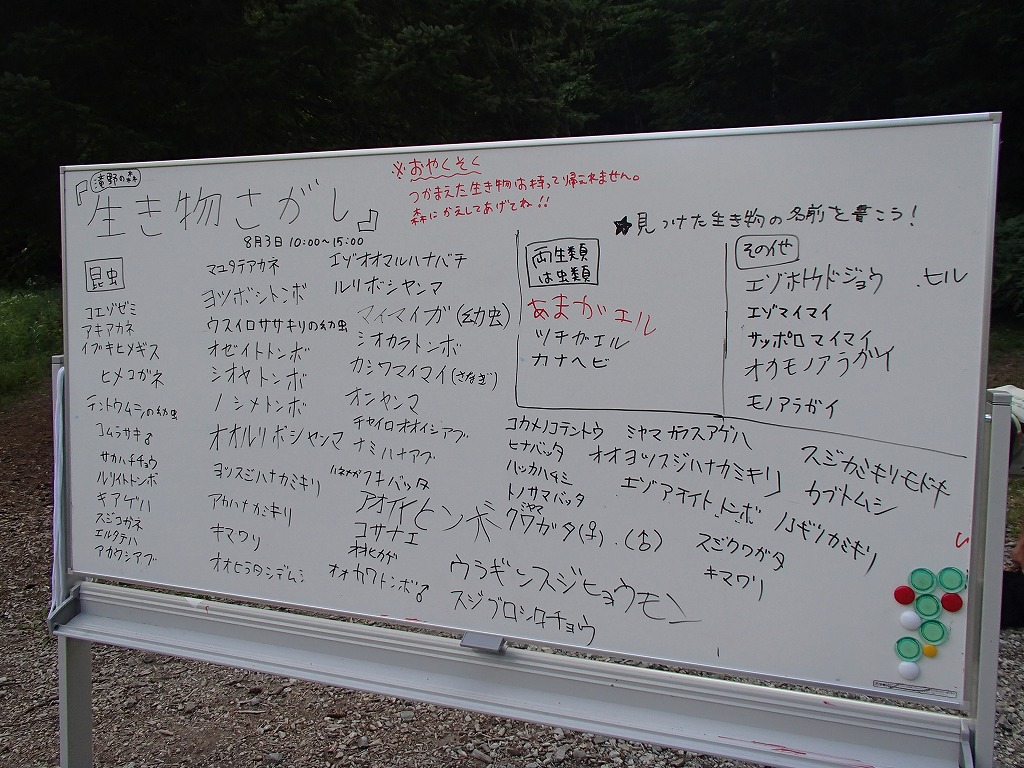 『滝野の森
生き物さがし』
8月3日 10:00～15:00
※おやくそく
つかまえた生き物は持って帰えれません。
森にかえしてあげてね!!
★見つけた生き物の名前を書こう!
昆虫
コエゾゼミ
アキアカネ
イブキヒメギス
ヒメコガネ
テントウムシの幼虫
コムラサキ♂
サカハチチョウ
ルリイトトンボ
キアゲハ
スジコガネ
エルタテハ
アカウシアブ
マユタテアカネ
ヨツボシトンボ
ウスイロササキリの幼虫
オゼイトトンボ
シオヤトンボ
ノシメトンボ
オオルリボシヤンマ
ヨツスジハナカミキリ
アカハナカミキリ
キマワリ
オオヒラタシデムシ
エゾオオマルハナバチ
ルリボシヤンマ
マイマイガ(幼虫)
シオカラトンボ
カシワマイマイ(さなぎ)
オニヤンマ
チャイロオオイシアブ
ナミハナアブ
ハネナガフキバッタ
アオイトトンボ
コサナエ
オオカワトンボ♂
両生類
は虫類
あまがエル
ツチガエル
カナヘビ
その他
エゾホトケドジョウ
.ヒル
エゾマイマイ
サッポロマイマイ
オカモノアラガイ
モノアラガイ
コカメノコテントウ
ヒナバッタ
トノサマバッタ
ミヤマ
クワガタ(♀).(♂)
ウラギンスジヒョウモン
スジグロシロチョウ
ミヤマカラスアゲハ
オオヨツスジハナカミキリ
エゾアオイトトンボ
スジカミキリモドキ
カブトムシ
ノコギリカミキリ
スジクワガタ
キマワリ